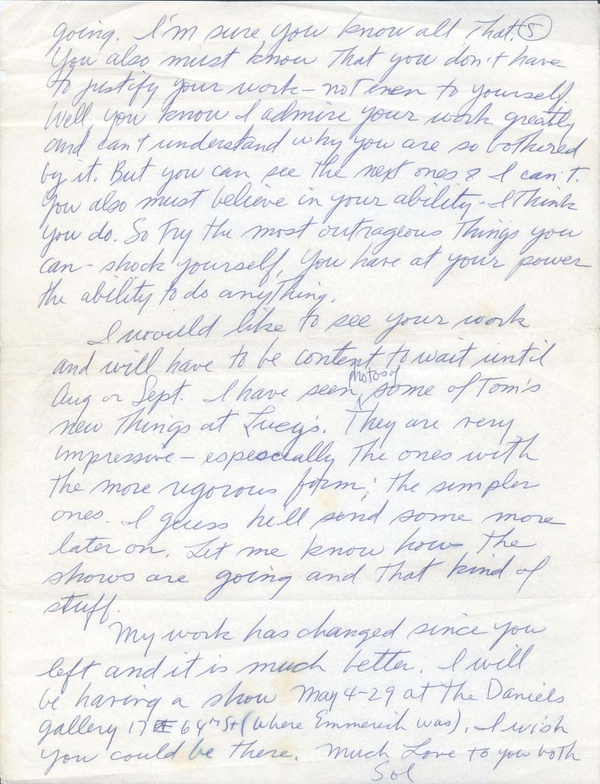 going. I'm sure you know all that. 5
You also must know that you don't have
to justify your work - not even to yourself.
Well you know I admire your work greatly
and can't understand why you are so bothered
by it. But you can see the next ones & I can't.
You also must believe in your ability - I think
you do. So try the most outrageous things you
can - shock yourself. You have at your power
the ability to do anything.
I would like to see your work
and will have to be content to wait until
Aug or Sept. I have seen photos of some of Tom's
new things at Lucy's. They are very
impressive - especially the ones with
the more rigorous form; the simpler
ones. I guess he'll send some more
later on. Let me know how the
shows are going and that kind of
stuff.
My work has changed since you
left and it is much better. I will
be having a show May 4-29 at the Daniels
gallery 17 E 64th St (where Emmerich was). I wish
you could be there. Much Love to you both
Sol